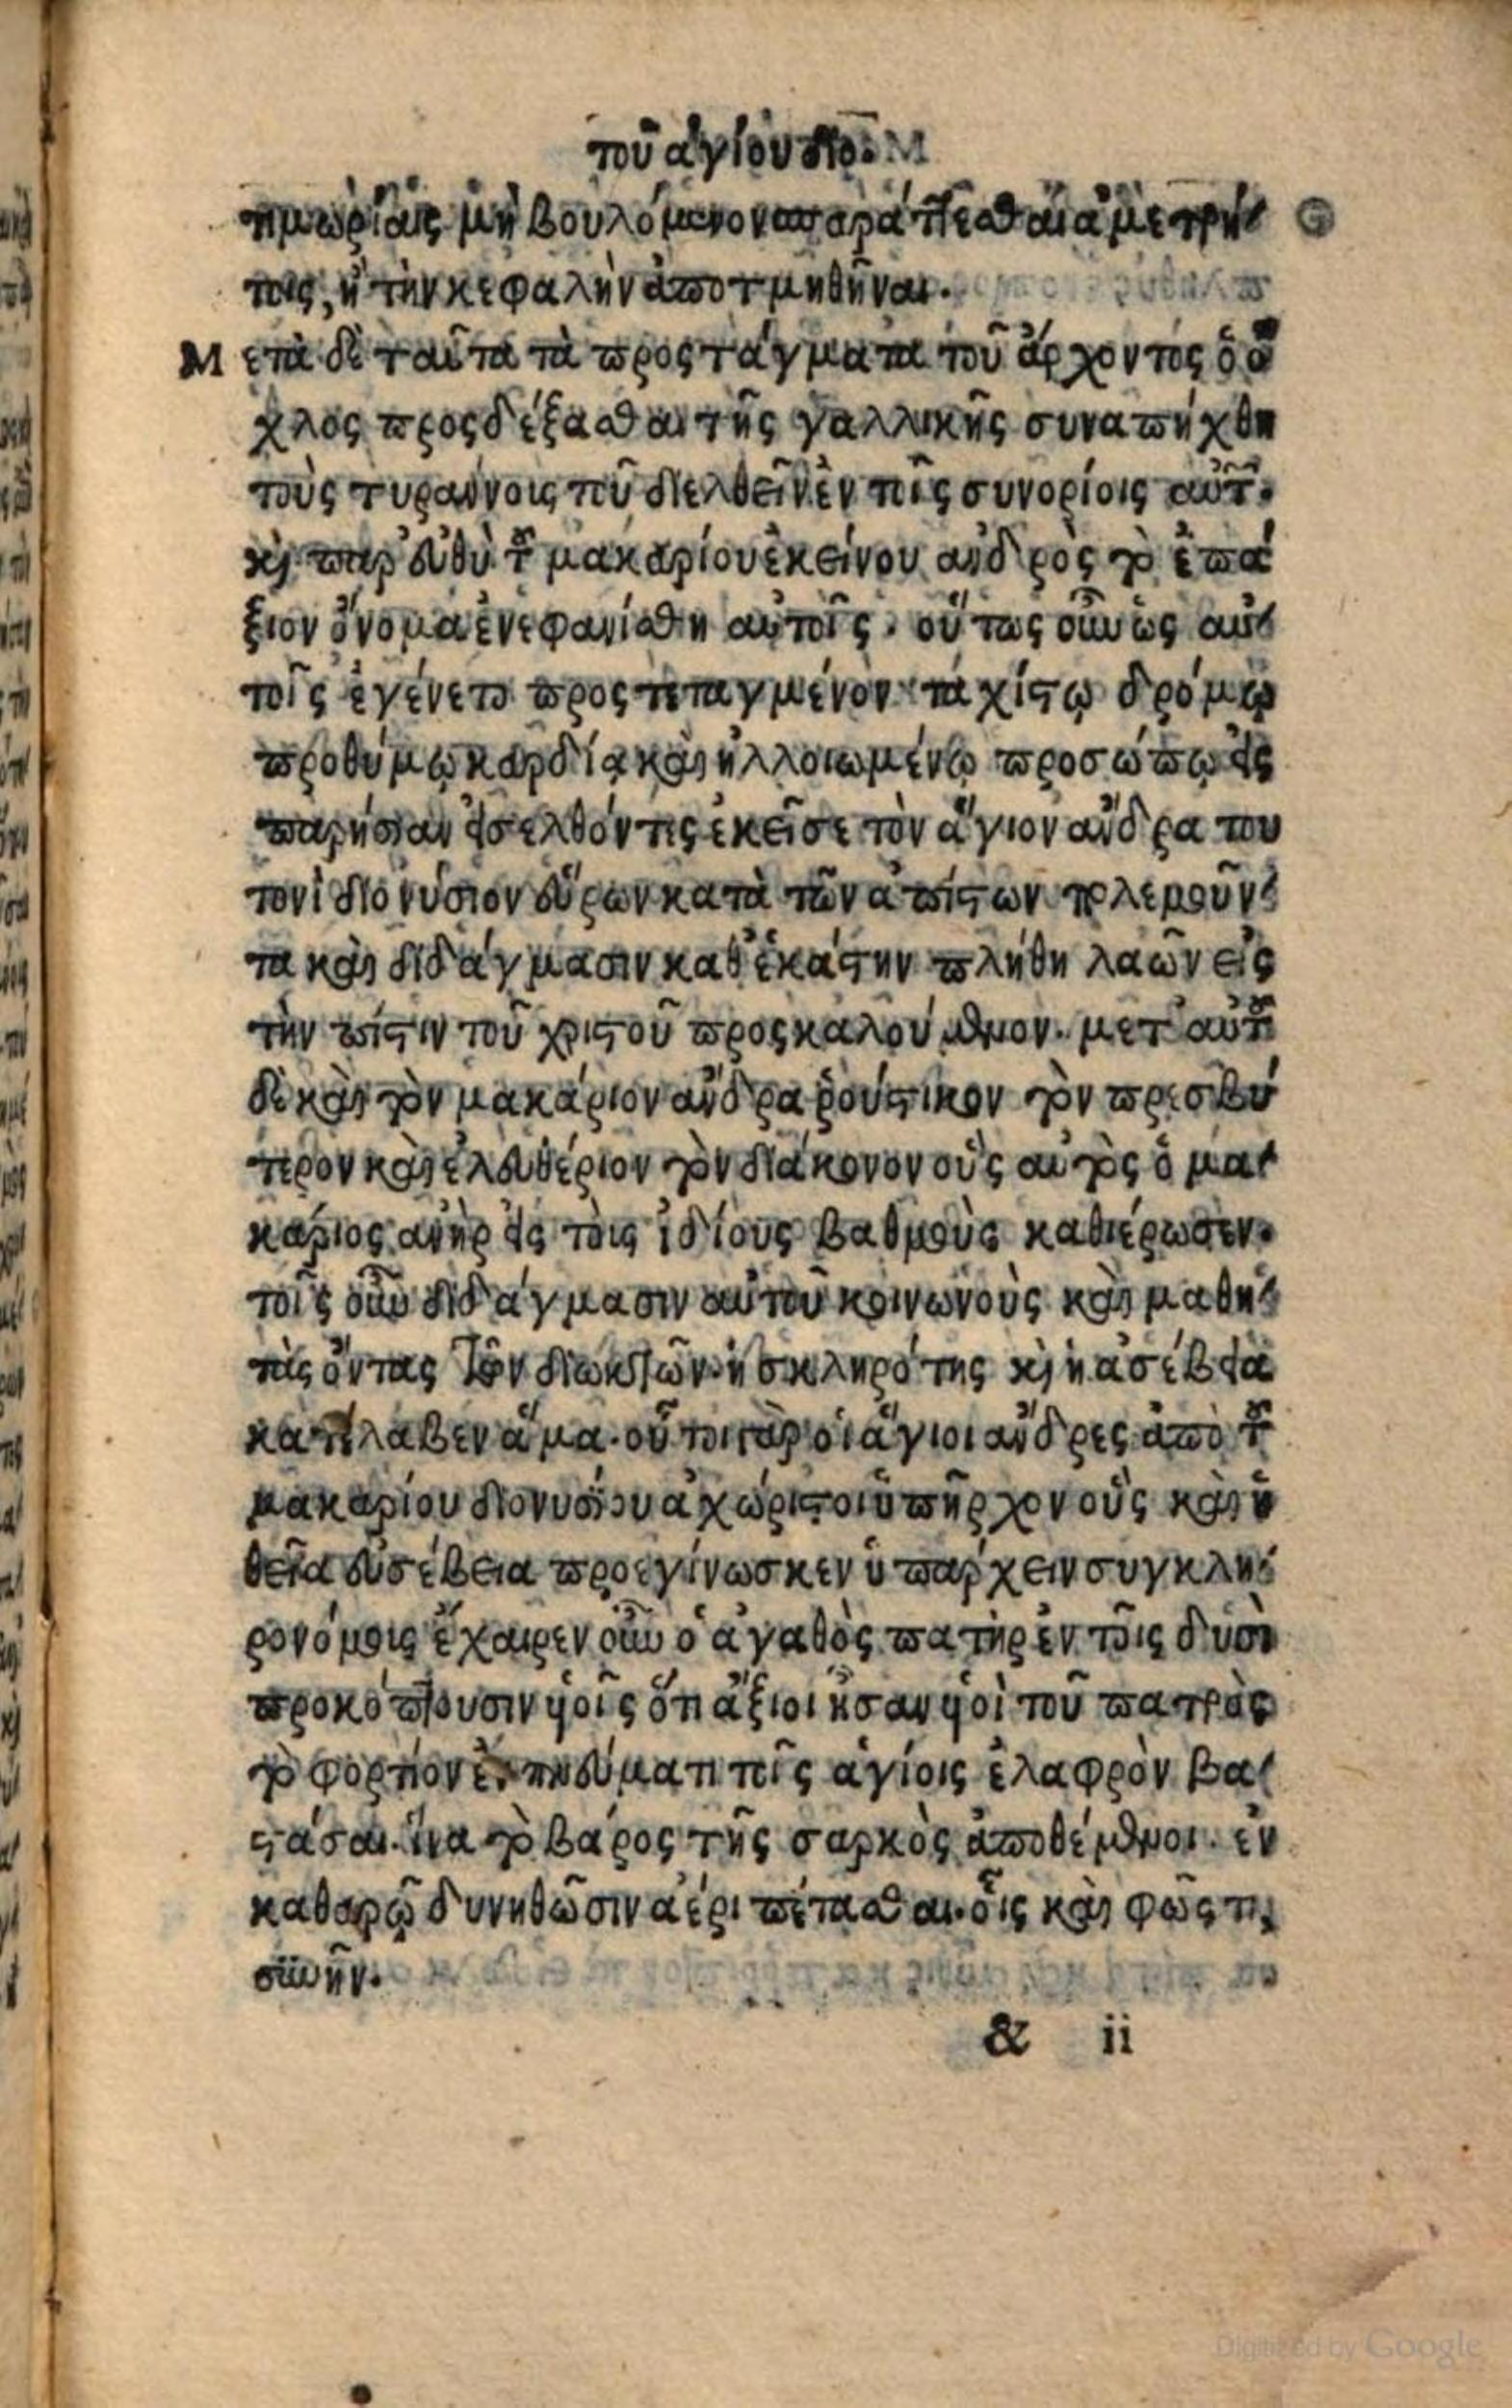 τοῦ ἁγίου διο.
τιμωρίαις μὴ βουλόμενον παρατίθεσθαι ἀμετρή
τοις, ἢ τὴν κεφαλὴν ἀποτμηθῆναι.
Μ ετὰ δὲ ταῦτα τὰ προςτάγματα τοῦ ἄρχοντος ὁ ὄ
χλος προςδέξασθαι τῆς γαλλικῆς συναπήχθη
τοὺς τυράννοις τοῦ διελθεῖν ἐν τοῖς συνορίοις αὐτ.
καὶ παρ' εὐθὺ τοῦ μακαρίου ἐκείνου ἀνδρὸς τὸ ἐπά
ξιον ὄνομα ἐνεφανίσθη αὐτοῖς. οὕτως οὖν ὡς αὐ
τοῖς ἐγένετο προςτεταγμένον ταχίστῳ δρόμῳ
προθύμῳ καρδίᾳ καὶ ἠλλοιωμένῳ προσώπῳ εἰς
παρήσιαν εἰσελθόντες ἐκεῖσε τὸν ἅγιον ἄνδρα του
τονὶ διονύσιον εὗρον κατὰ τῶν ἀπίστων πολεμοῦν
τα καὶ διδάγμασιν καθ' ἑκάστην πλήθη λαῶν εἰς
τὴν πίστιν τοῦ χριστοῦ προςκαλούμενον. μετ' αὐτοῦ
δὲ καὶ τὸν μακάριον ἄνδρα ῥούστικον τὸν πρεσβύ
τερον καὶ ἐλευθέριον τὸν διάκονον οὓς αὐτὸς ὁ μα
κάριος ἀνὴρ εἰς τοὺς ἰδίους βαθμοὺς καθιέρωσεν.
τοῖς οὖν διδάγμασιν αὐτοῦ κοινωνοὺς καὶ μαθη
τὰς ὄντας τῶν διωκτῶν. ἡ σκληρότης καὶ ἡ ἀσέβεια
κατέλαβεν ἅμα. οὗτοι γὰρ οἱ ἅγιοι ἄνδρες ἀπὸ τοῦ
μακαρίου διονυσίου ἀχώριστοι ὑπῆρχον οὓς καὶ ἡ
θεῖα εὐσέβεια προεγίνωσκεν ὑπάρχειν συγκλη
ρονόμοις ἔχαιρεν οὖν ὁ ἀγαθὸς πατὴρ ἐν τοῖς δυσὶ
προκόπτουσιν υἱοῖς ὅτι ἄξιοι ἦσαν υἱοὶ τοῦ πατρὸς
τὸ φορτίον πνεύματι τοῖς ἁγίοις ἐλαφρὸν βα
στάσαι. ἵνα τὸ βάρος τῆς σαρκὸς ἀποθέμενοι. ἐν
καθαρῷ δυνηθῶσιν ἀέρι πέτασθαι. οἷς καὶ φῶς τι
συνῆν.
& ii
Digitized by Google